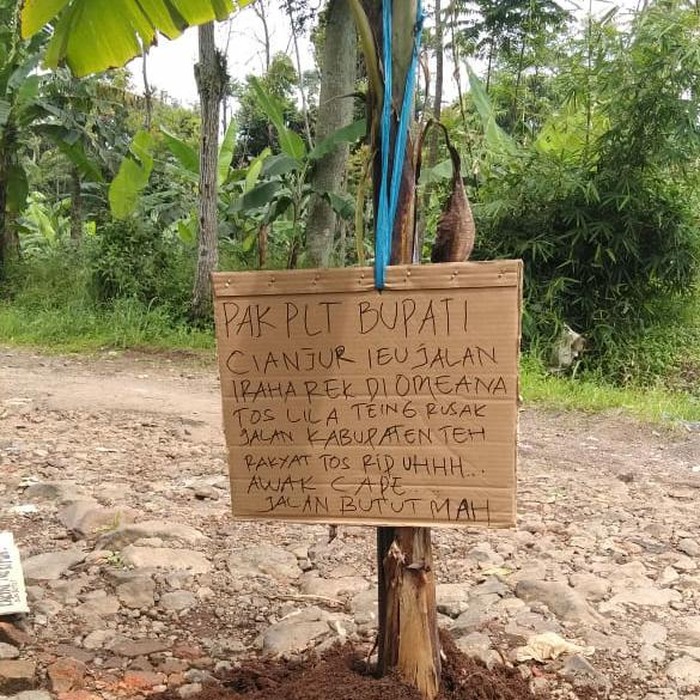 PAK PLT BUPATI
CIANJUR IEU JALAN
IRAHA REK DI OMEANA
TOS LILA TEING RUSAK
JALAN KABUPATEN TEH
RAKYAT TOS RIDUHHH...
AWAK CAPE
JALAN BUTUT MAH